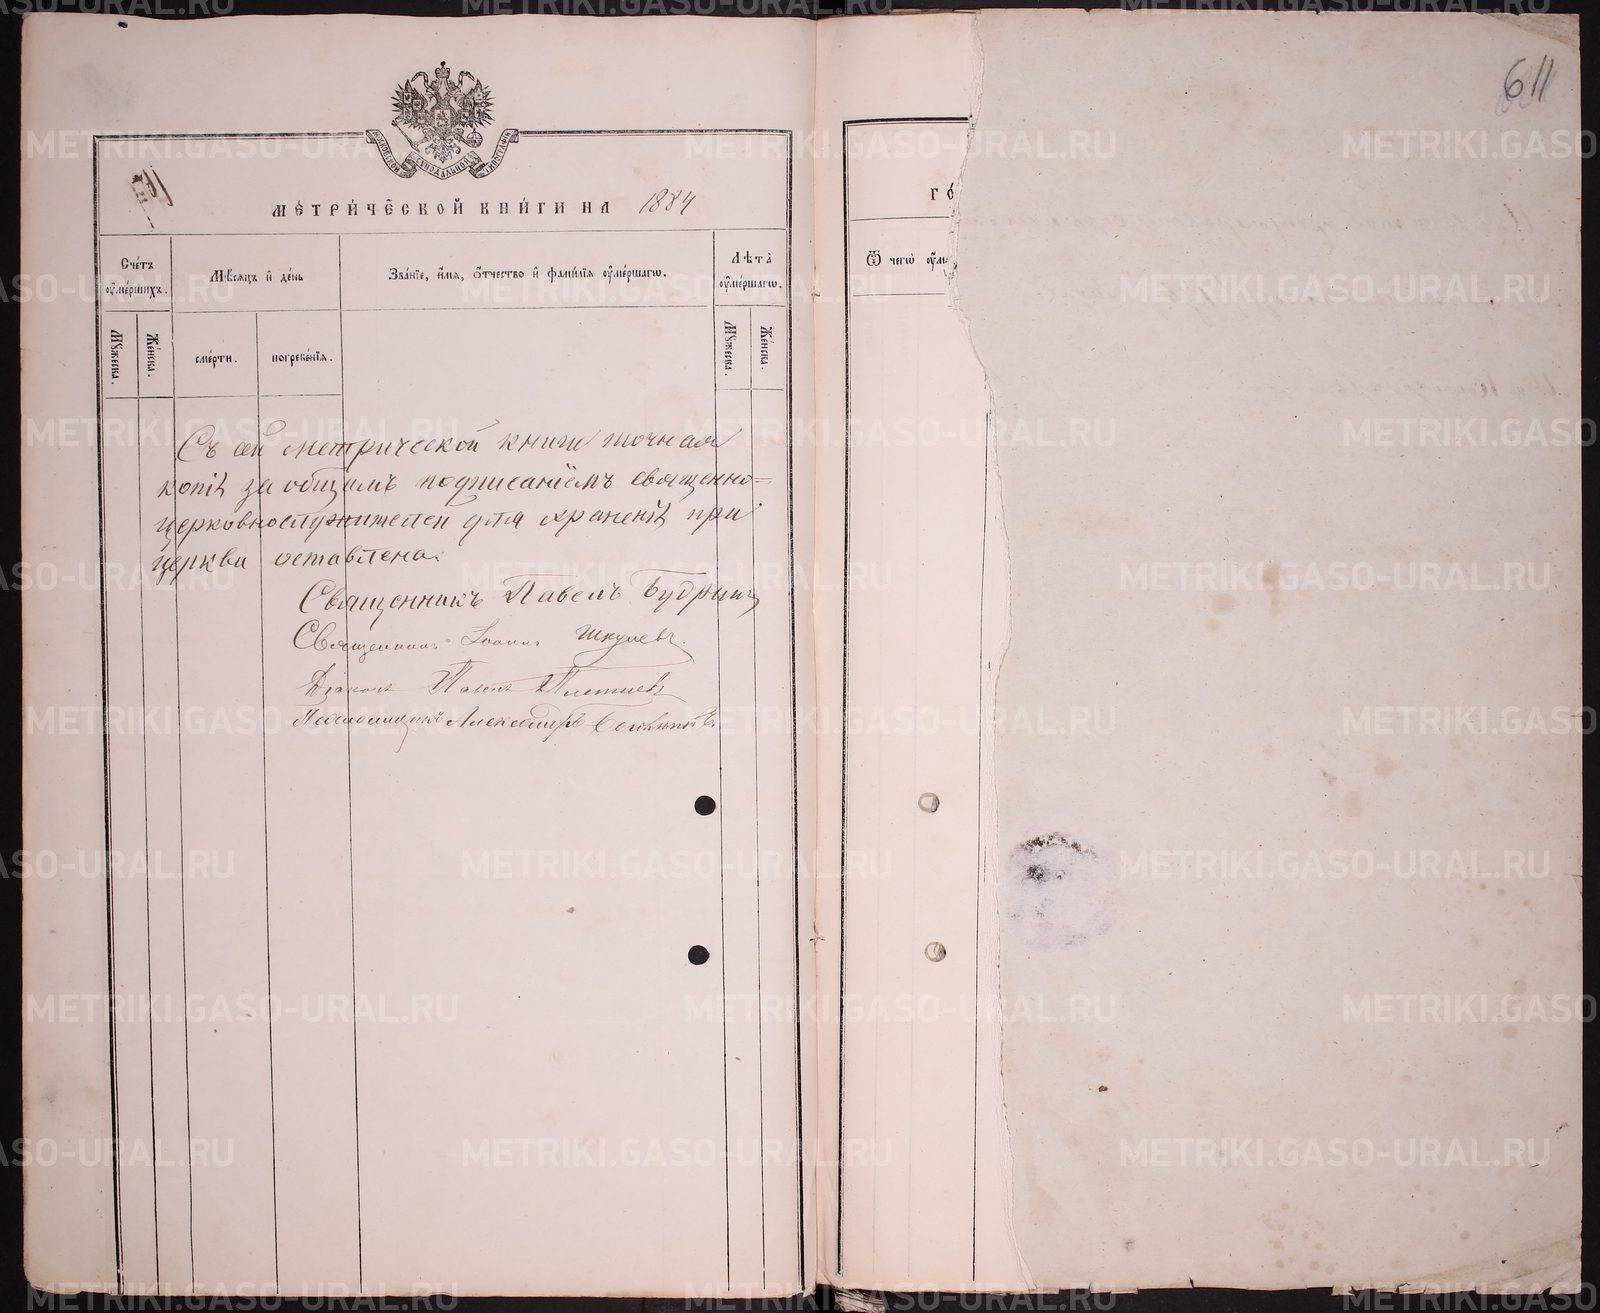 611
МОСКОВСКОЙ СѴНОДАЛЬНОЙ ТИПОГРАФІИ
МЕ́ТРИ́ЧЕСКОЙ КНИ́ГИ НА 1884
ГО́
Сче́тъ ᲂу҆ме́ршихъ.
Мѣ́сяцъ и҆ де́нь
Зва́нїе, и҆́мя, ѻ҆́тчество и҆ фами́лїя ᲂу҆ме́ршагѡ.
Лѣ́та ᲂу҆ме́ршагѡ.
Ѿ чегѡ̀ ᲂу҆́м
Мꙋ́жеска.
Же́нска.
сме́рти.
погребе́нїя.
Мꙋ́жеска.
Же́нска.
Съ сей метрической книги точная
копія за общимъ подписаніемъ священно=
церковнослужителей для храненія при
церкви оставлена.
Священникъ Павелъ Будринъ
Священникъ Іоаннъ Шкулевъ
Діаконъ Павелъ Плотневъ
Псаломщикъ Александръ
METRIKI.GASO-URAL.RU